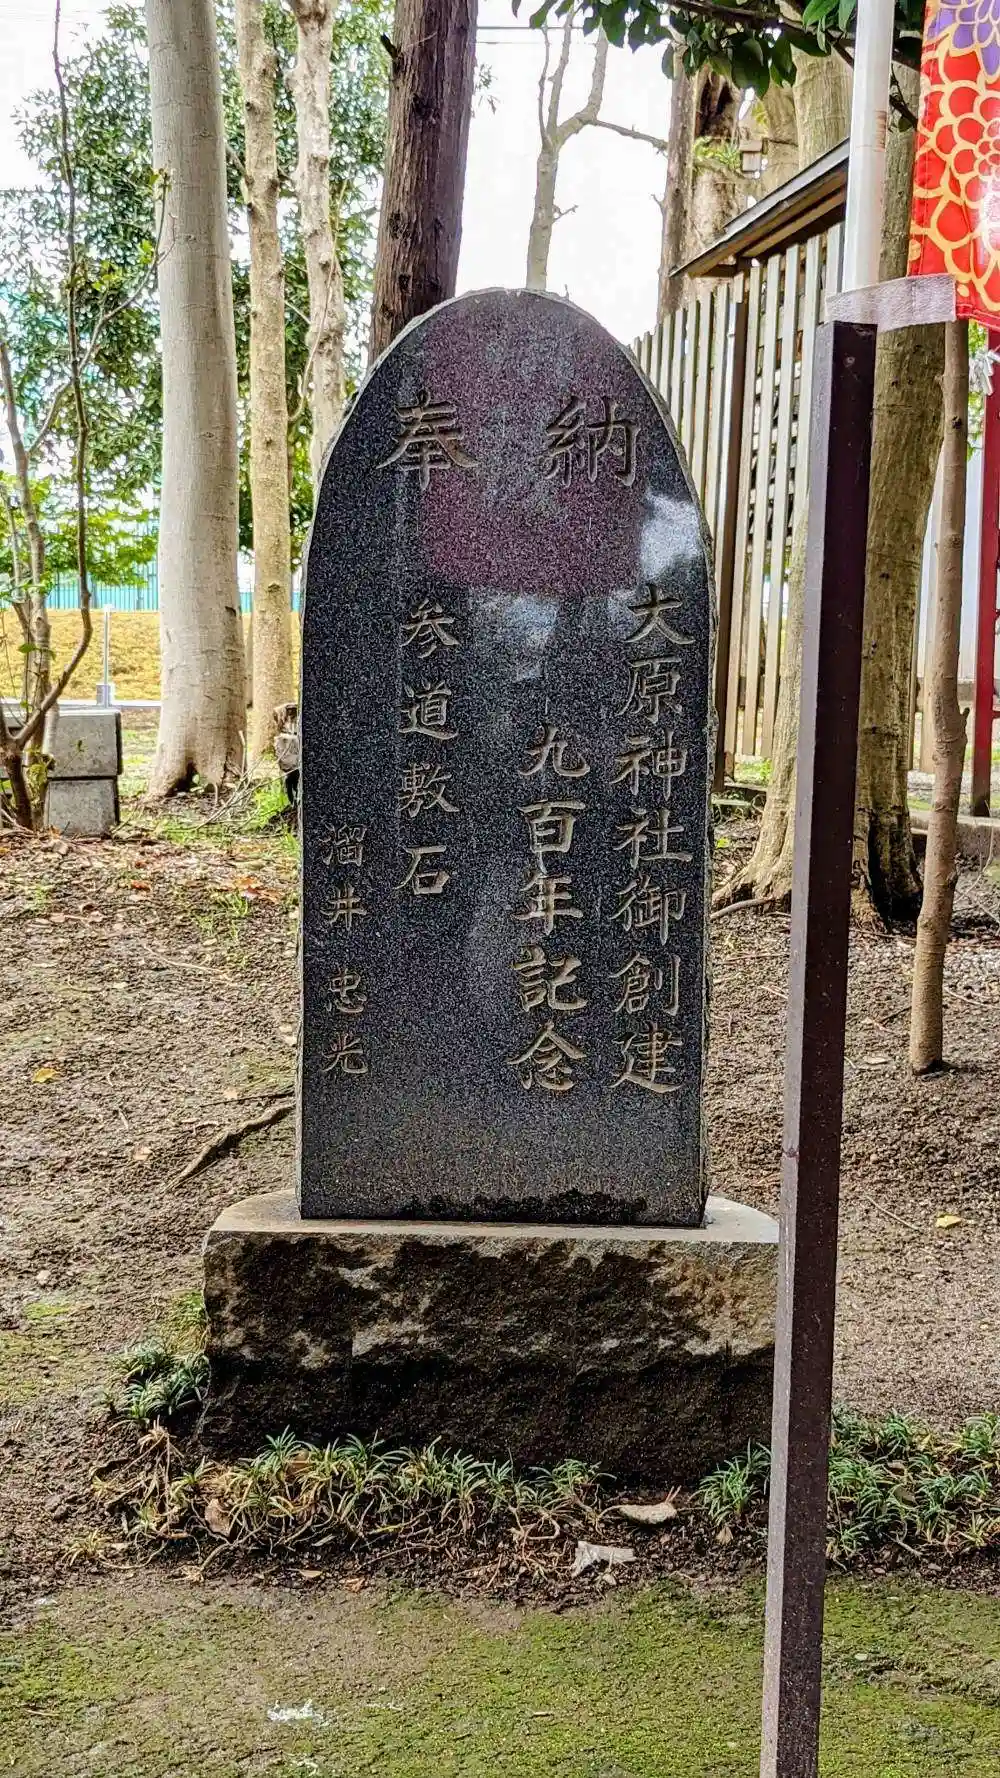 奉納
大原神社御創建
九百年記念
参道敷石
溜井忠光